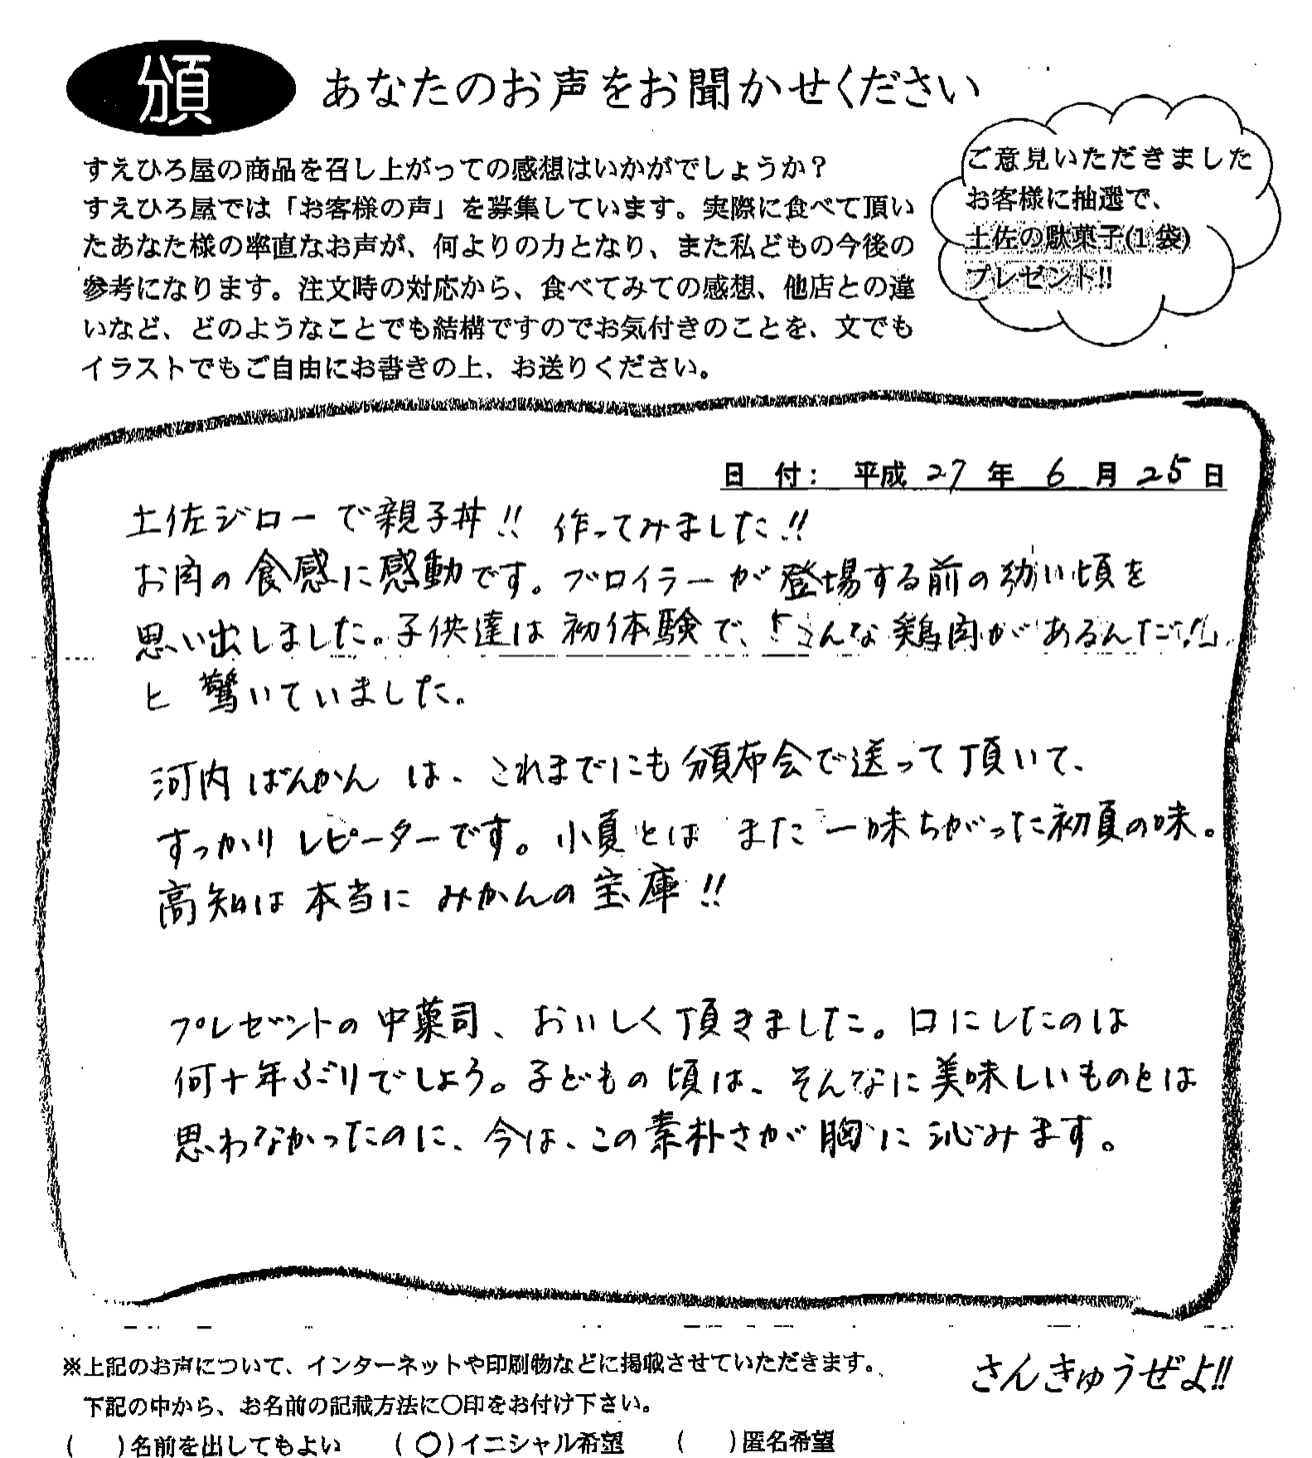 頒 あなたのお声をお聞かせください
すえひろ屋の商品を召し上がっての感想はいかがでしょうか?
すえひろ屋では「お客様の声」を募集しています。実際に食べて頂い
たあなた様の率直なお声が、何よりの力となり、また私どもの今後の
参考になります。注文時の対応から、食べてみての感想、他店との違
いなど、どのようなことでも結構ですのでお気付きのことを、文でも
イラストでもご自由にお書きの上、お送りください。
ご意見いただきました
お客様に抽選で、
土佐の駄菓子(1袋)
プレゼント!!
日 付: 平成 27 年 6 月 25 日
土佐ジローで親子丼!! 作ってみました!!
お肉の食感に感動です。ブロイラーが登場する前の幼い頃を
思い出しました。子供達は初体験で、「こんな鶏肉があるんだ!」
と驚いていました。
河内ばんかんは、これまでにも頒布会で送って頂いて、
すっかりレピーターです。小夏とはまた一味ちがった初夏の味。
高知は本当にみかんの宝庫!!
プレゼントの中菓司、おいしく頂きました。口にしたのは
何十年ぶりでしょう。子どもの頃は、そんなに美味しいものとは
思わなかったのに、今は、この素朴さが胸に沁みます。
※上記のお声について、インターネットや印刷物などに掲載させていただきます。
下記の中から、お名前の記載方法に〇印をお付け下さい。
( )名前を出してもよい (〇)イニシャル希望 ( )匿名希望
さんきゅうぜよ!!